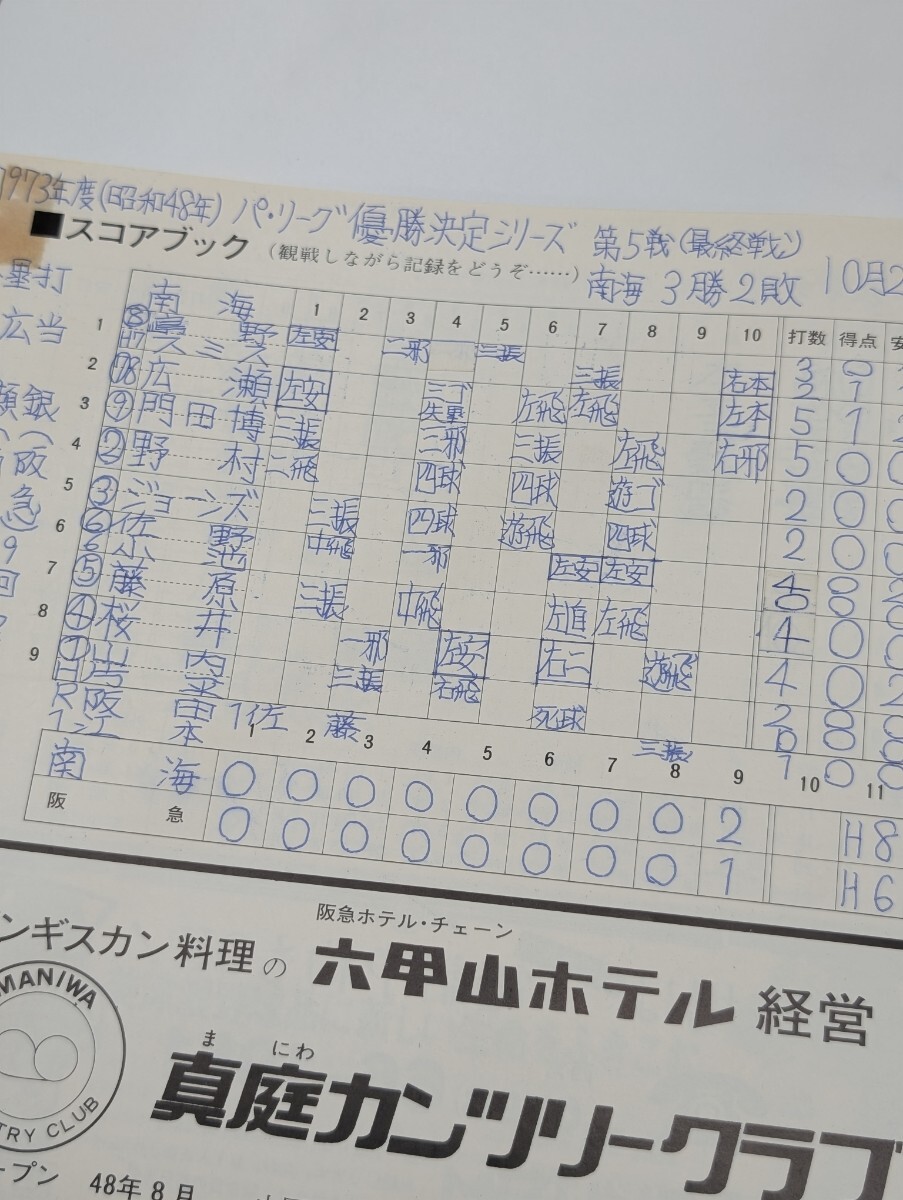 1973年度(昭和48年) パ・リーグ優勝決定シリーズ 第5戦(最終戦)
■スコアブック (観戦しながら記録をどうぞ……) 南海 3勝2敗 10月2
塁打
広当
銀
阪
急
9
回
南 海 1 2 3 4 5 6 7 8 9 10 打数 得点 安
1 ⑧ 野 左安 二邪 三振 3 0
H7 スミス 三振 右本 2 1
2 広 瀬 左安 三ゴ失塁 左飛 左飛 左本 5 1 2
3 ⑨ 門田博 三振 三邪 三振 左飛 右邪 5 0 0
4 ② 野 村 二飛 四球 四球 遊ゴ 2 0 0
5 ③ ジョーンズ 三振 四球 遊飛 四球 2 0 0
6 ⑥ 佐 野 中飛 一邪 左安 左安 4 0 2
6 小 池 0 0
7 ⑤ 藤 原 三振 中飛 左直 左飛 4 0 0
8 ④ 桜 井 一邪 左安 右二 遊飛 4 0 2
9 ① 山 内 三振 右飛 死球 2 0 0
H 0 0
R 阪 田 三振 1 0 0
1 江 本 1 佐 藤
1 2 3 4 5 6 7 8 9 10 11
南 海 0 0 0 0 0 0 0 0 2 H8
阪 急 0 0 0 0 0 0 0 0 1 H6
ンギスカン料理の 阪急ホテル・チェーン 六甲山ホテル 経営
MANIWA
TRY CLUB
ま にわ
真庭カンツリークラブ
ープン 48年8月